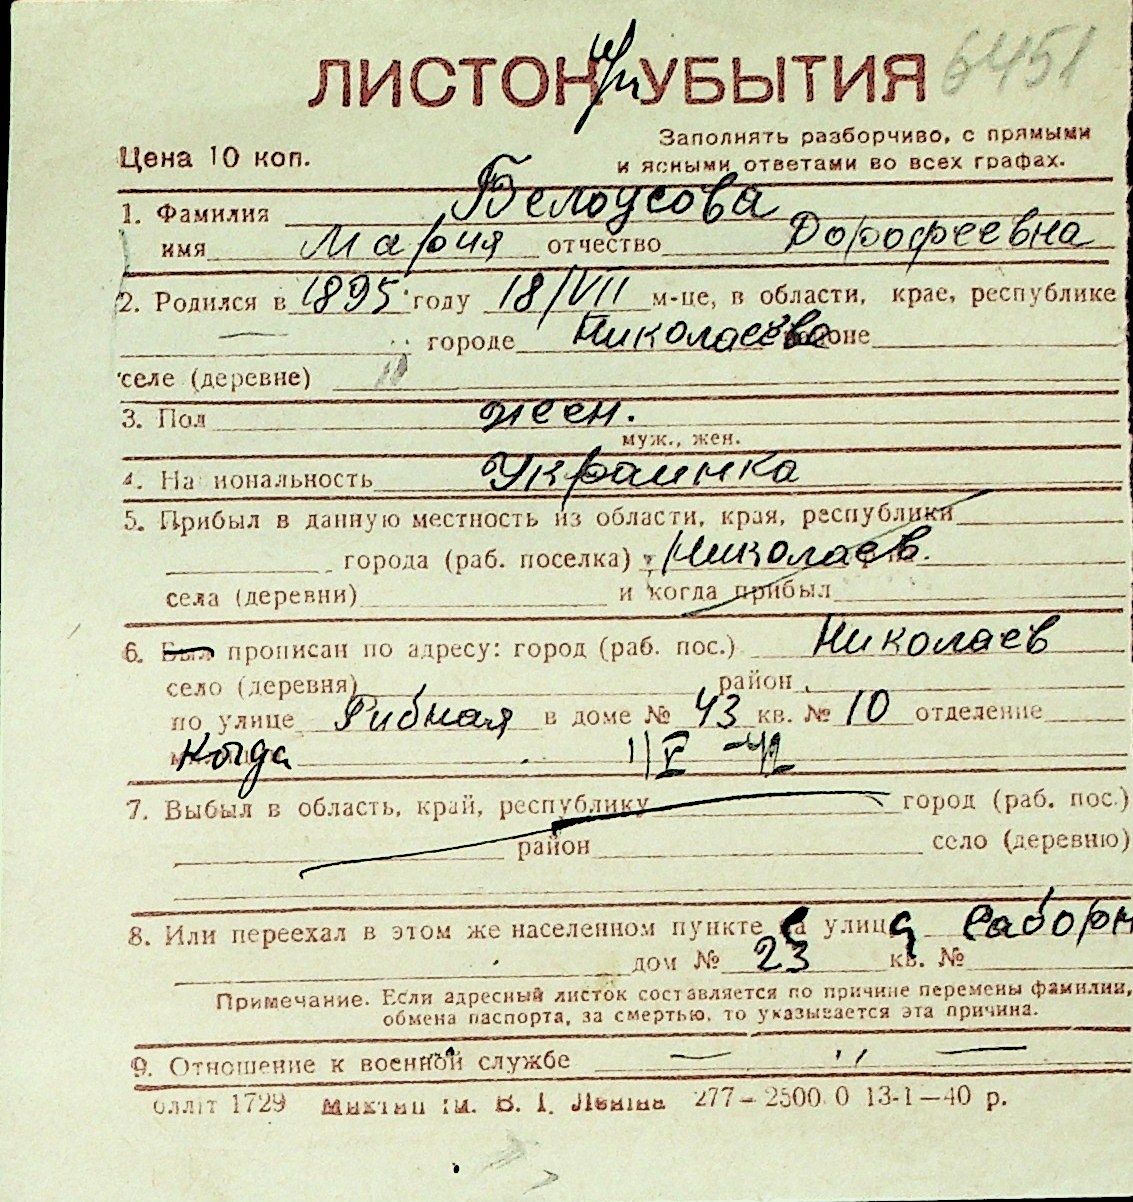 6451
ЛИСТОК при УБЫТИЯ
Цена 10 коп.
Заполнять разборчиво, с прямыми
и ясными ответами во всех графах.
1. Фамилия Белоусова
имя Мария отчество Дорофеевна
2. Родился в 1895 году 18/VII м-це, в области, крае, республике
— городе Николаеве районе
селе (деревне)
3. Пол жен.
муж., жен.
4. На иональность Украинка
5. Прибыл в данную местность из области, края, республики
города (раб. поселка) Николаев.
села (деревни) и когда прибыл
6. Был прописан по адресу: город (раб. пос.) Николаев
село (деревня) район
по улице Рибная в доме № 43 кв. № 10 отделение
Когда 1/V-42
7. Выбыл в область, край, республику город (раб. пос.)
район село (деревню)
8. Или переехал в этом же населенном пункте с улица Саборн
дом № 23 кв. №
Примечание. Если адресный листок составляется по причине перемены фамилии,
обмена паспорта, за смертью, то указывается эта причина.
9. Отношение к военной службе — " —
1729 В. І. Леніна 277–2500 0 13-1—40 р.